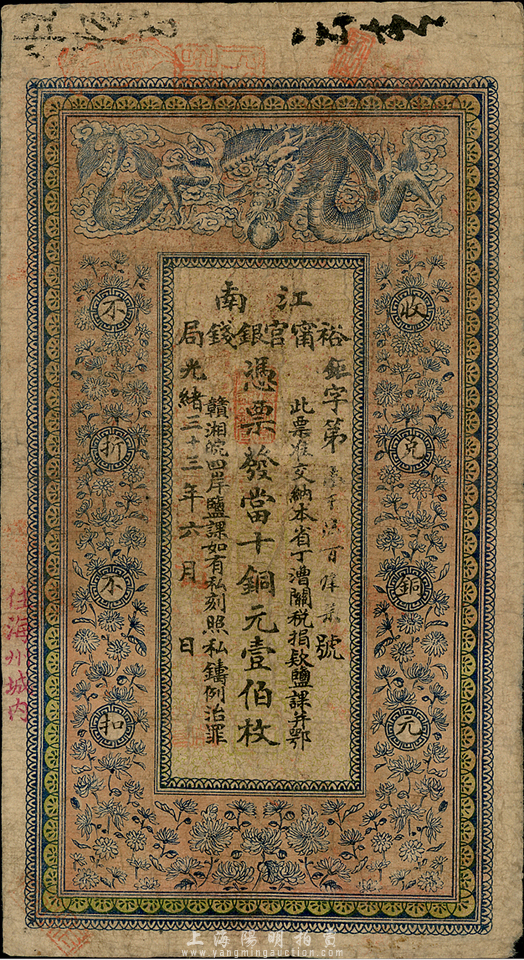 江南
裕甯官銀錢局
鉅字第 號
此票准交納本省丁漕關稅捐欵鹽課并鄂
憑票發當十銅元壹佰枚
贛湘皖四岸鹽課如有私刻照私鑄例治罪
光緒三十三年六月 日
收兌銅元
不折不扣
住海州城內
上海陽明拍賣
www.yangmingauction.com